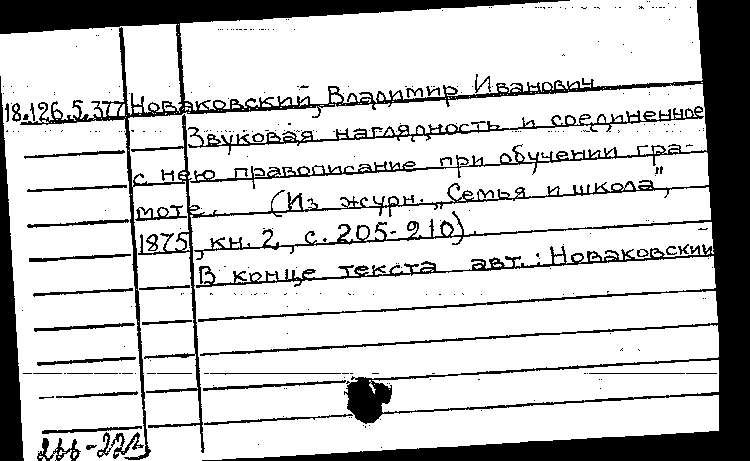 18.126.5.377 Новаковский, Владимир Иванович
Звуковая наглядность и соединенное
с нею правописание при обучении гра-
моте. (Из журн. „Семья и школа",
1875, кн. 2, с. 205-210).
В конце текста авт.: Новаковский